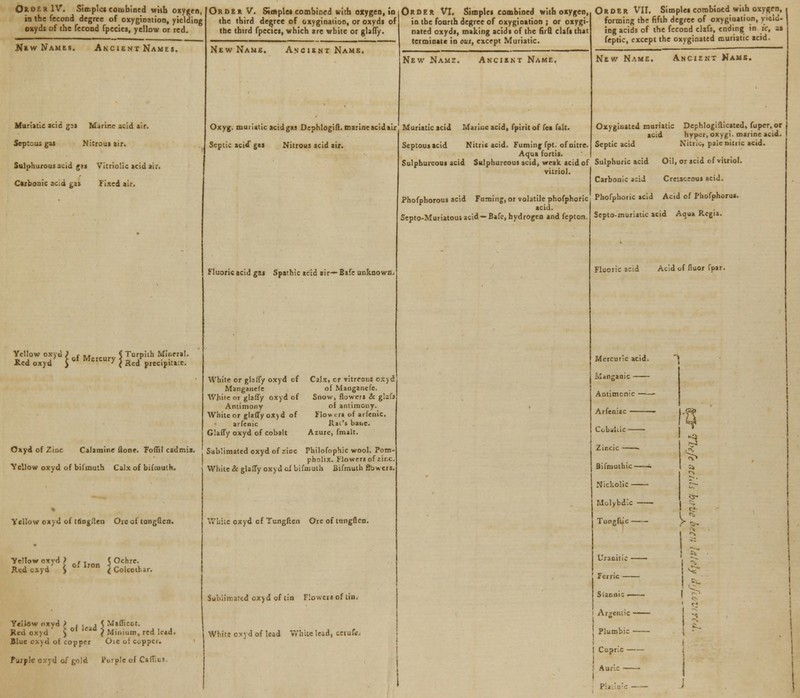 ORDER IV. Simples combined with oxygen,
in the ſecond degree of oxygination, yielding
oxyds of the ſecond ſpecies, yellow or red.
NEW NAMES. ANCIENT NAMES.
Muriatic acid gas Marine acid air.
Septous gas Nitrous air.
Sulphurous acid gas Vitriolic acid air.
Carbonic acid gas Fixed air.
Yellow oxyd } of Mercury { Turpith Mineral.
Red oxyd } { Red precipitate.
Oxyd of Zinc Calamine ſtone. Foſſil cadmia.
Yellow oxyd of biſmuth Calx of biſmuth.
Yellow oxyd of tungſten Ore of tungſten.
Yellow oxyd } of Iron { Ochre.
Red oxyd } { Colcothar.
Yellow oxyd } of lead { Maſſicot.
Red oxyd } { Minium, red lead.
Blue oxyd of copper Ore of copper.
Purple oxyd of gold Purple of Caſſius.
ORDER V. Simples combined with oxygen, in
the third degree of oxygination, or oxyds of
the third ſpecies, which are white or glaſſy.
NEW NAME. ANCIENT NAME.
Oxyg. muriatic acid gas Dephlogiſt. marine acid air
Septic acid gas Nitrous acid air.
Fluoric acid gas Spathic acid air—Baſe unknown.
White or glaſſy oxyd of Calx, or vitreous oxyd
Manganeſe of Manganeſe.
White or glaſſy oxyd of Snow, flowers & glaſs
Antimony of antimony.
White or glaſſy oxyd of Flowers of arſenic.
arſenic Rat's bane.
Glaſſy oxyd of cobalt Azure, ſmalt.
Sublimated oxyd of zinc Philoſophic wool. Pom-
pholix. Flowers of zinc.
White & glaſſy oxyd of biſmuth Biſmuth flowers.
White oxyd of Tungſten Ore of tungſten.
Sublimated oxyd of tin Flowers of tin.
White oxyd of lead White lead, ceruſe.
ORDER VI. Simples combined with oxygen,
in the fourth degree of oxygination; or oxygi-
nated oxyds, making acids of the firſt claſs that
terminate in ous, except Muriatic.
NEW NAME. ANCIENT NAME.
Muriatic acid Marine acid, ſpirit of ſea ſalt.
Septous acid Nitric acid. Fuming ſpt. of nitre.
Aqua fortis.
Sulphureous acid Sulphureous acid, weak acid of
vitriol.
Phoſphorous acid Fuming, or volatile phoſphoric
acid.
Septo-Muriatous acid—Baſe, hydrogen and ſepton.
ORDER VII. Simples combined with oxygen,
forming the fifth degree of oxygination, yield-
ing acids of the ſecond claſs, ending in ic, as
ſeptic, except the oxyginated muriatic acid.
NEW NAME. ANCIENT NAME.
Oxyginated muriatic Dephlogiſticated, ſuper, or
acid hyper, oxygi. marine acid.
Septic acid Nitric, pale nitric acid.
Sulphuric acid Oil, or acid of vitriol.
Carbonic acid Cretaceous acid.
Phoſphoric acid Acid of Phoſphorus.
Septo-muriatic acid Aqua Regia.
Fluoric acid Acid of fluor ſpar.
Mercuric acid.
Manganic ——
Antimonic ——
Arſeniac ——
Cobaltic ——
Zincic ——
Biſmuthic ——
Nickolic ——
Molybdic ——
Tungſtic ——
Uranitic ——
Ferric ——
Stannic ——
Argentic ——
Plumbic ——
Cupric ——
Auric ——
Platinic ——
Theſe acids have been lately diſcovered.